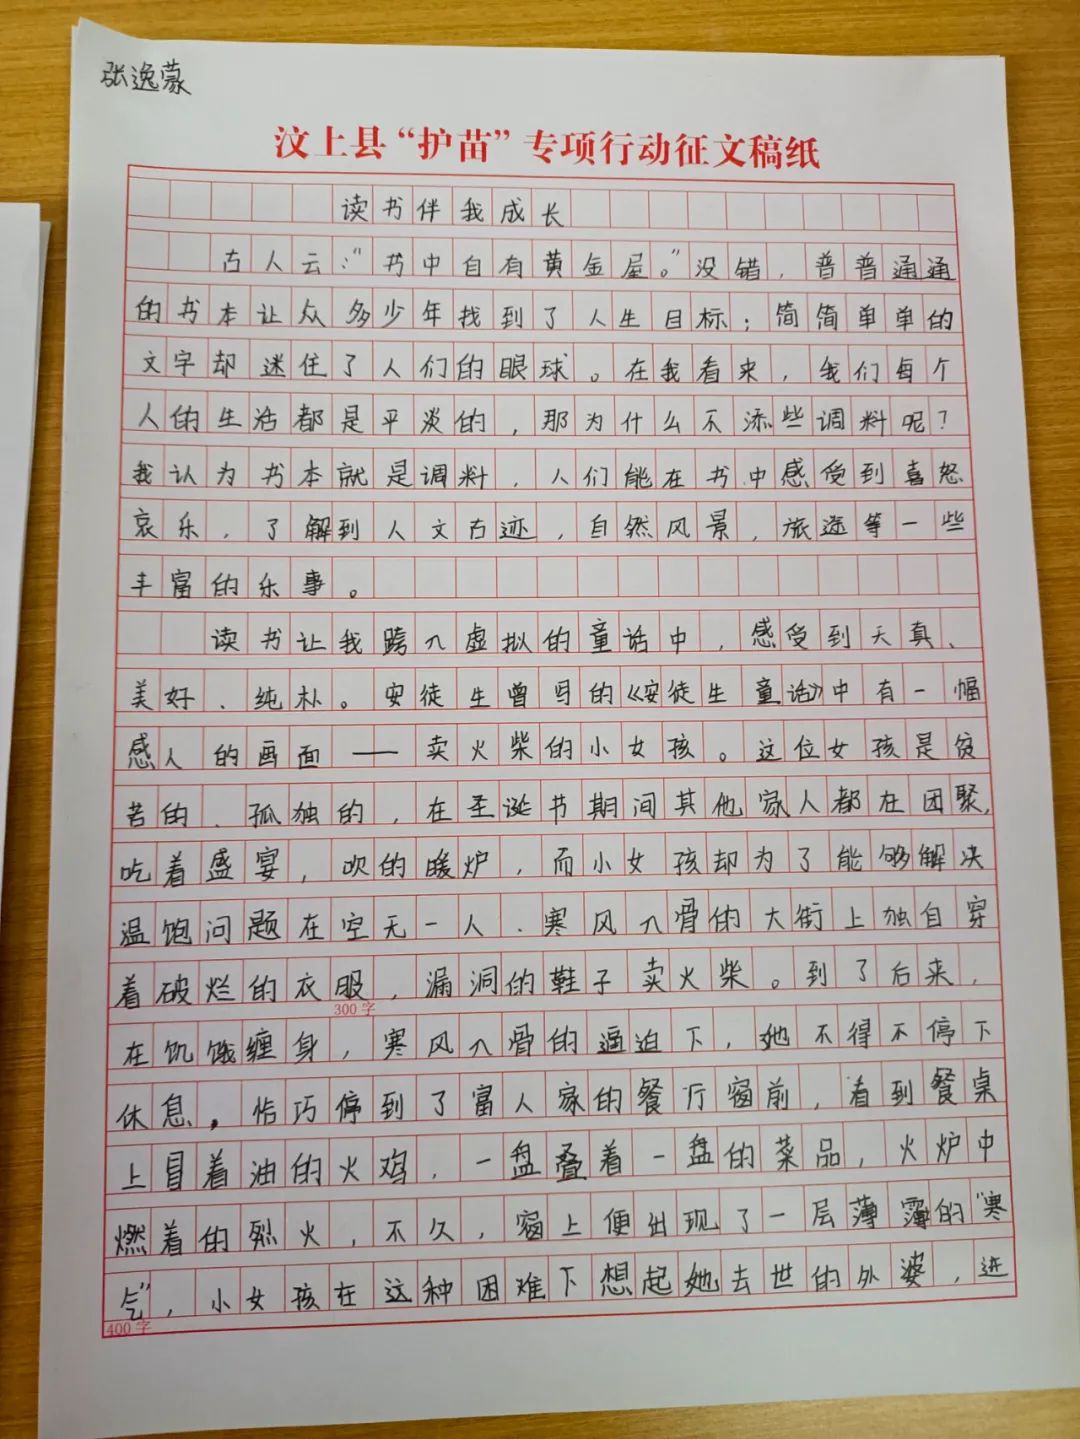 张逸蒙
汶上县“护苗”专项行动征文稿纸
读书伴我成长
古人云:“书中自有黄金屋。”没错，普普通通
的书本让众多少年找到了人生目标；简简单单的
文字却迷住了人们的眼球。在我看来，我们每个
人的生活都是平淡的，那为什么不添些调料呢？
我认为书本就是调料，人们能在书中感受到喜怒
哀乐，了解到人文古迹，自然风景，旅途等一些
丰富的乐事。
读书让我跨入虚拟的童话中，感受到天真、
美好、纯朴。安徒生曾写的《安徒生童话》中有一幅
感人的画面——卖火柴的小女孩。这位女孩是贫
苦的、孤独的，在圣诞节期间其他家人都在团聚，
吃着盛宴，吹的暖炉，而小女孩却为了能够解决
温饱问题在空无一人、寒风入骨的大街上独自穿
着破烂的衣服，漏洞的鞋子卖火柴。到了后来，
300字
在饥饿缠身，寒风入骨的逼迫下，她不得不停下
休息。恰巧停到了富人家的餐厅窗前，看到餐桌
上冒着油的火鸡，一盘叠着一盘的菜品，火炉中
燃着的烈火，不久，窗上便出现了一层薄薄的“寒
气”，小女孩在这种困难下想起她去世的外婆，进
400字